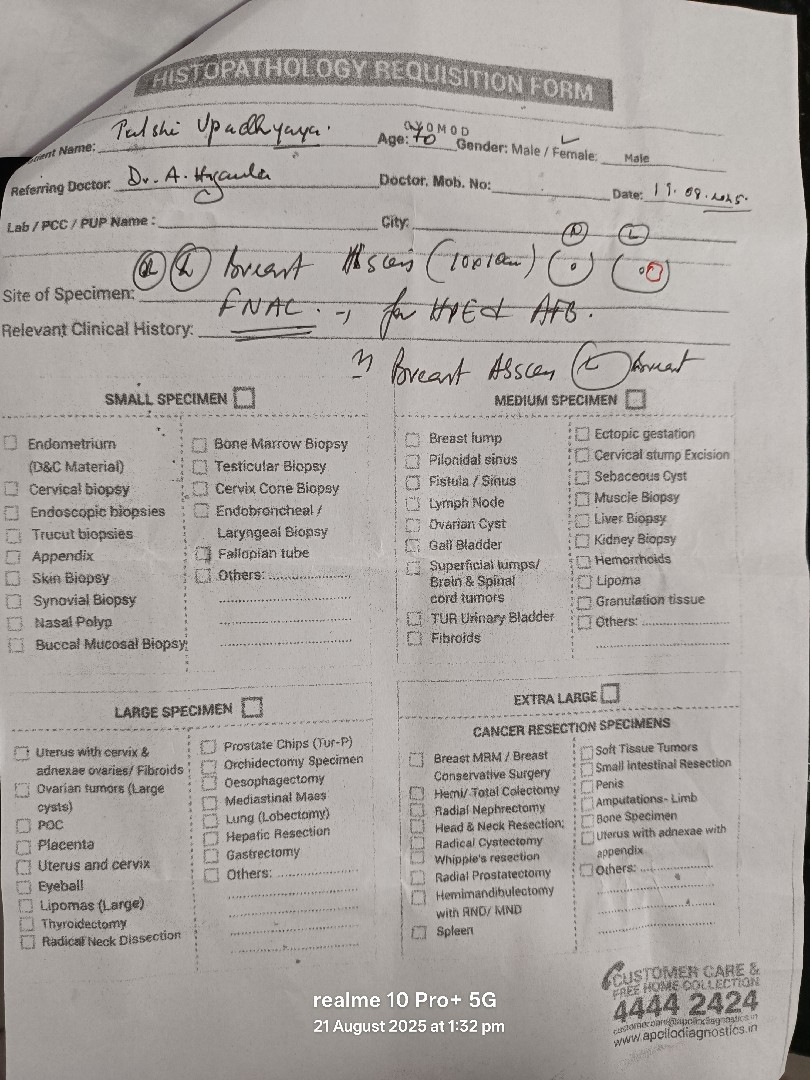 HISTOPATHOLOGY REQUISITION FORM
ent Name: Palshi Upadhyaya.
Age: 70 YOMOD Gender: Male / Female: Male
Referring Doctor: Dr. A.
Doctor. Mob. No:
Date: 19.08.2025.
Lab / PCC / PUP Name :
City:
R L
L Breast
Site of Specimen:
FNAC. → for HPE & AFB.
Relevant Clinical History:
Breast Abscess L Breast
SMALL SPECIMEN
Endometrium
(D&C Material)
Cervical biopsy
Endoscopic biopsies
Trucut biopsies
Appendix
Skin Biopsy
Synovial Biopsy
Nasal Polyp
Buccal Mucosal Biopsy
Bone Marrow Biopsy
Testicular Biopsy
Cervix Cone Biopsy
Endobroncheal /
Laryngeal Biopsy
Fallopian tube
Others: ....................
MEDIUM SPECIMEN
Breast lump
Pilonidal sinus
Fistula / Sinus
Lymph Node
Ovarian Cyst
Gall Bladder
Superficial lumps/
Brain & Spinal
cord tumors
TUR Urinary Bladder
Fibroids
Ectopic gestation
Cervical stump Excision
Sebaceous Cyst
Muscle Biopsy
Liver Biopsy
Kidney Biopsy
Hemorrhoids
Lipoma
Granulation tissue
Others: ....................
LARGE SPECIMEN
Uterus with cervix &
adnexae ovaries/ Fibroids
Ovarian tumors (Large
cysts)
POC
Placenta
Uterus and cervix
Eyeball
Lipomas (Large)
Thyroidectomy
Radical Neck Dissection
Prostate Chips (Tur-P)
Orchidectomy Specimen
Oesophagectomy
Mediastinal Mass
Lung (Lobectomy)
Hepatic Resection
Gastrectomy
Others: ....................
EXTRA LARGE
CANCER RESECTION SPECIMENS
Breast MRM / Breast
Conservative Surgery
Hemi/ Total Colectomy
Radial Nephrectomy
Head & Neck Resection;
Radical Cystectomy
Whipple's resection
Radial Prostatectomy
Hemimandibulectomy
with RND/ MND
Spleen
Soft Tissue Tumors
Small Intestinal Resection
Penis
Amputations- Limb
Bone Specimen
Uterus with adnexae with
appendix
Others: ....................
CUSTOMER CARE &
FREE HOME COLLECTION
4444 2424
customercare@apollodiagnostics.in
www.apollodiagnostics.in
realme 10 Pro+ 5G
21 August 2025 at 1:32 pm